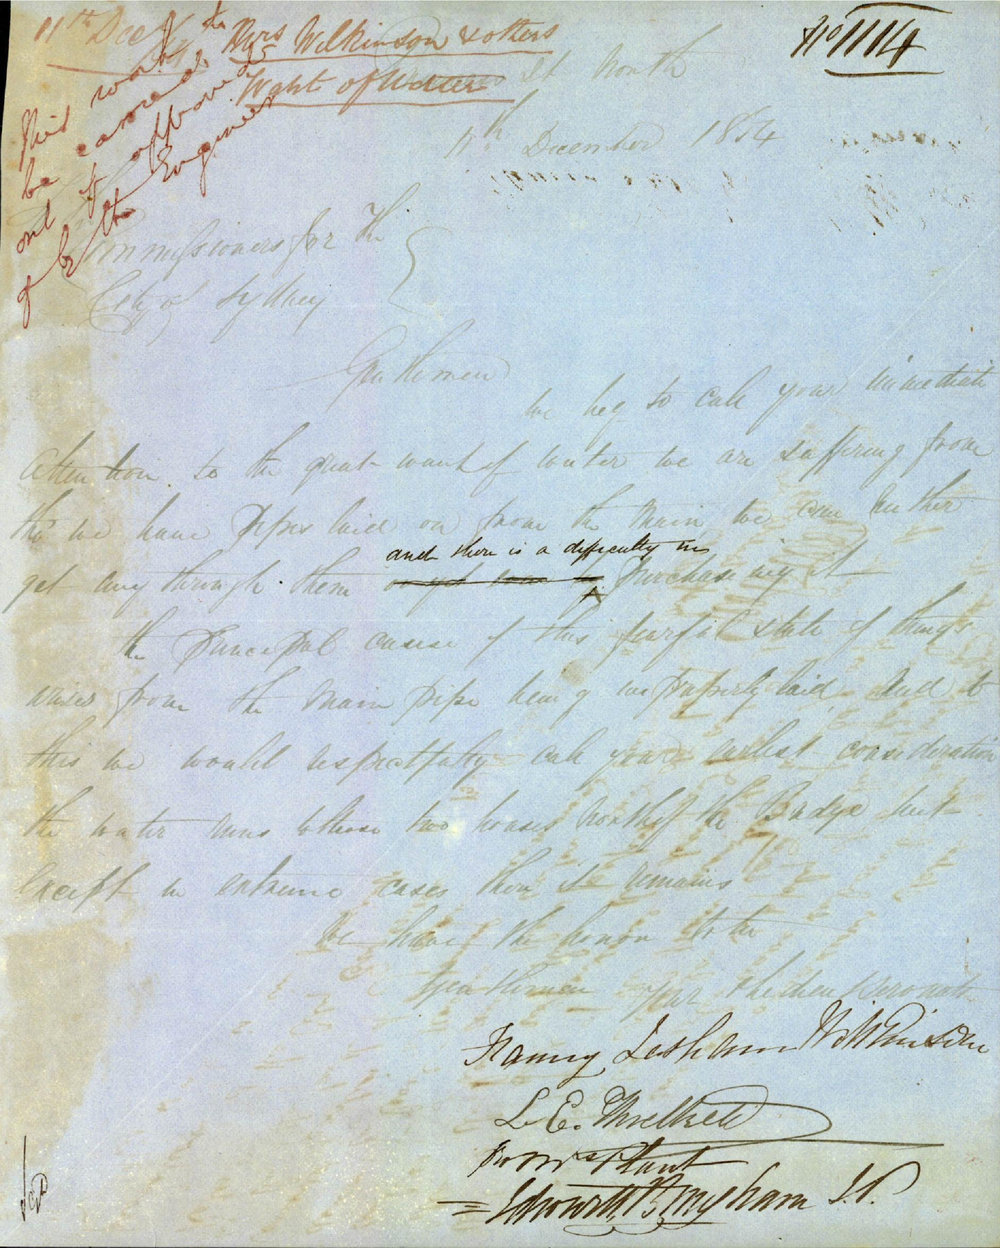 11th Dec
Mrs Wilkinson & others
Want of Water
No 1114
This work to
be carried
out if approved
of by the Engineer
St North
11th December 1854
Commissioners for the
City of Sydney
Gentlemen
We beg to call your immediate
attention to the great want of water we are suffering from
tho we have pipes laid on from the Main, we can neither
get any through them and there is a difficulty in purchasing it
the principal cause of this fearful state of things
arises from the main pipe being improperly laid and to
this we would respectfully call your earliest consideration
the water runs to those two houses North of the Bridge but
except in extreme cases then it remains
We have the honor to be
Gentlemen your obedient Servants
Fanny Lesham Wilkinson
L. E. Threlkeld
Plant
Edward Bingham J.P.